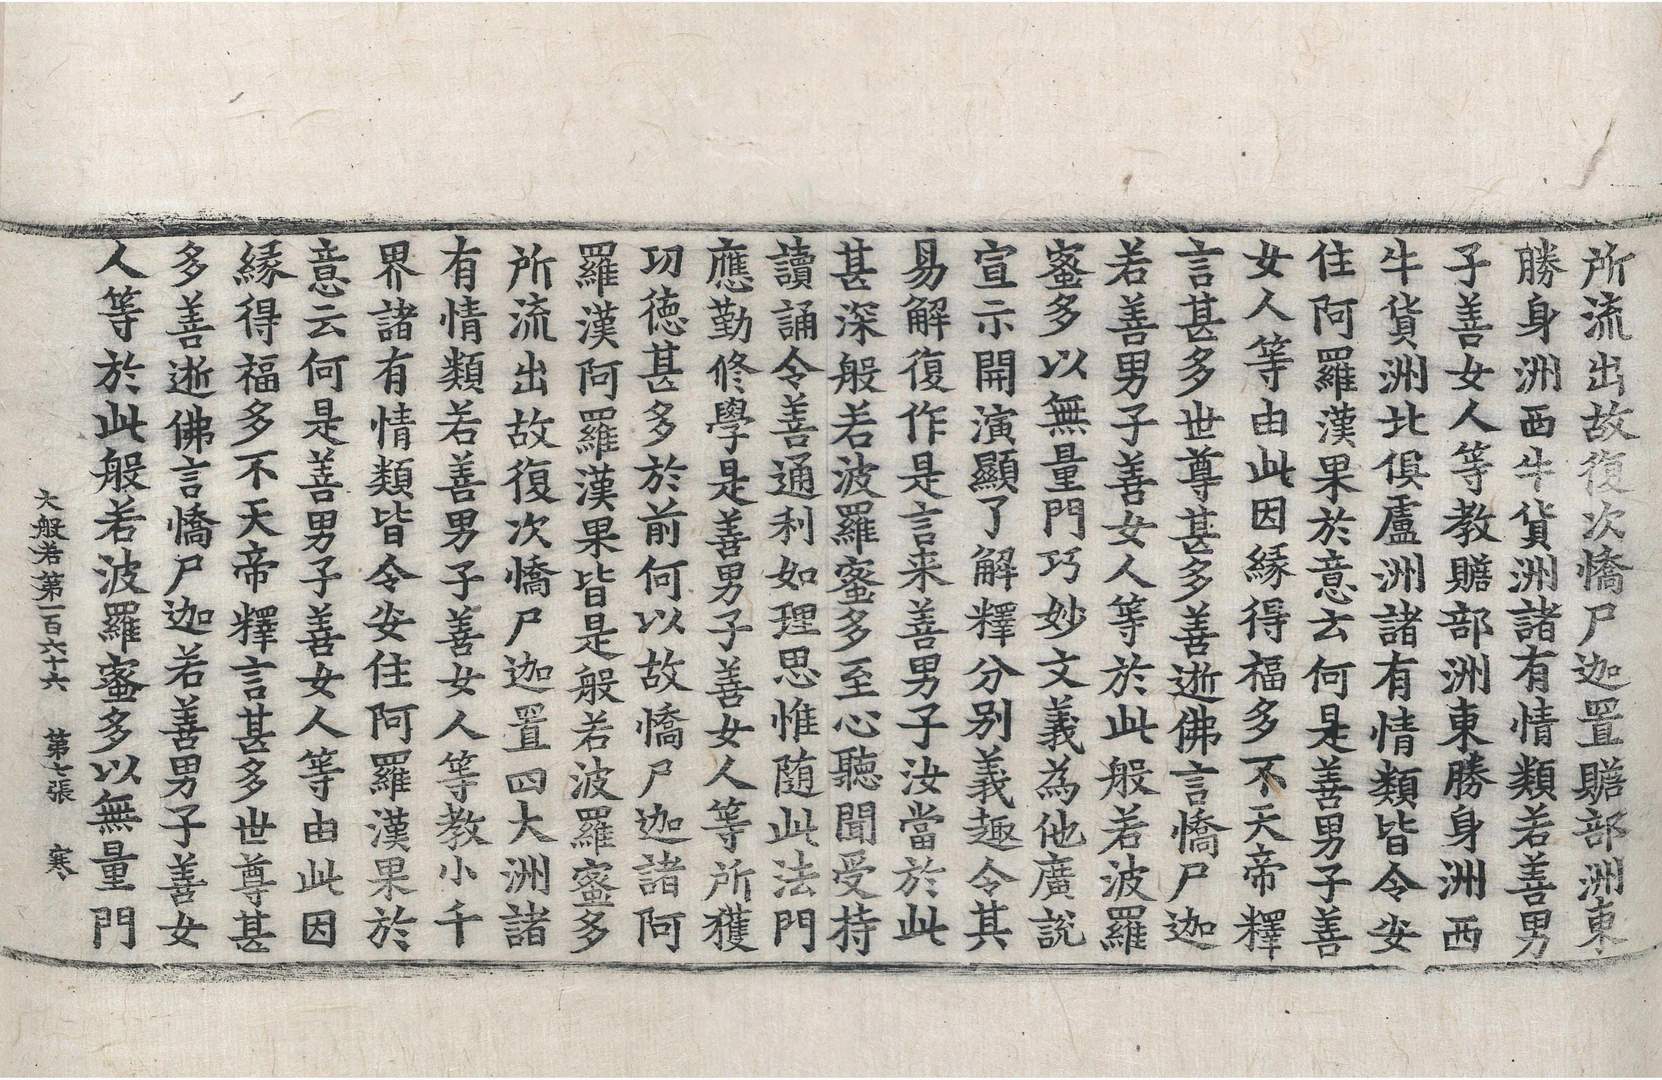 所流出故復次憍尸迦置贍部洲東
勝身洲西牛貨洲諸有情類若善男
子善女人等教贍部洲東勝身洲西
牛貨洲北俱盧洲諸有情類皆令安
住阿羅漢果於意云何是善男子善
女人等由此因緣得福多不天帝釋
言甚多世尊甚多善逝佛言憍尸迦
若善男子善女人等於此般若波羅
蜜多以無量門巧妙文義為他廣說
宣示開演顯了解釋分別義趣令其
易解復作是言来善男子汝當於此
甚深般若波羅蜜多至心聽聞受持
讀誦令善通利如理思惟随此法門
應勤修學是善男子善女人等所獲
功徳甚多於前何以故憍尸迦諸阿
羅漢阿羅漢果皆是般若波羅蜜多
所流出故復次憍尸迦置四大洲諸
有情類若善男子善女人等教小千
界諸有情類皆令安住阿羅漢果於
意云何是善男子善女人等由此因
緣得福多不天帝釋言甚多世尊甚
多善逝佛言憍尸迦若善男子善女
人等於此般若波羅蜜多以無量門
大般若第一百六十六 第七張 寒